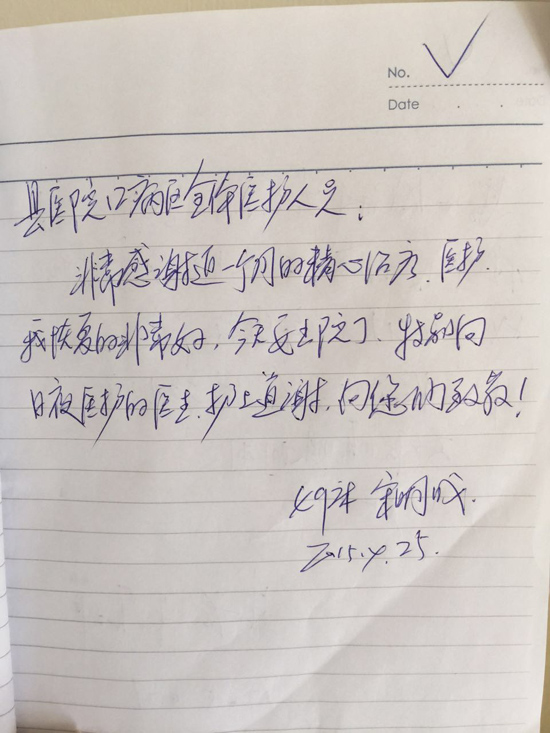 No.
Date
县医院口病区全体医护人员：
非常感谢近一个月的精心治疗、医护.
我恢复的非常好，今天要出院了. 特别向
日夜医护的医生.护士道谢，向您们致敬！
49床 宋明成.
2015.4.25.